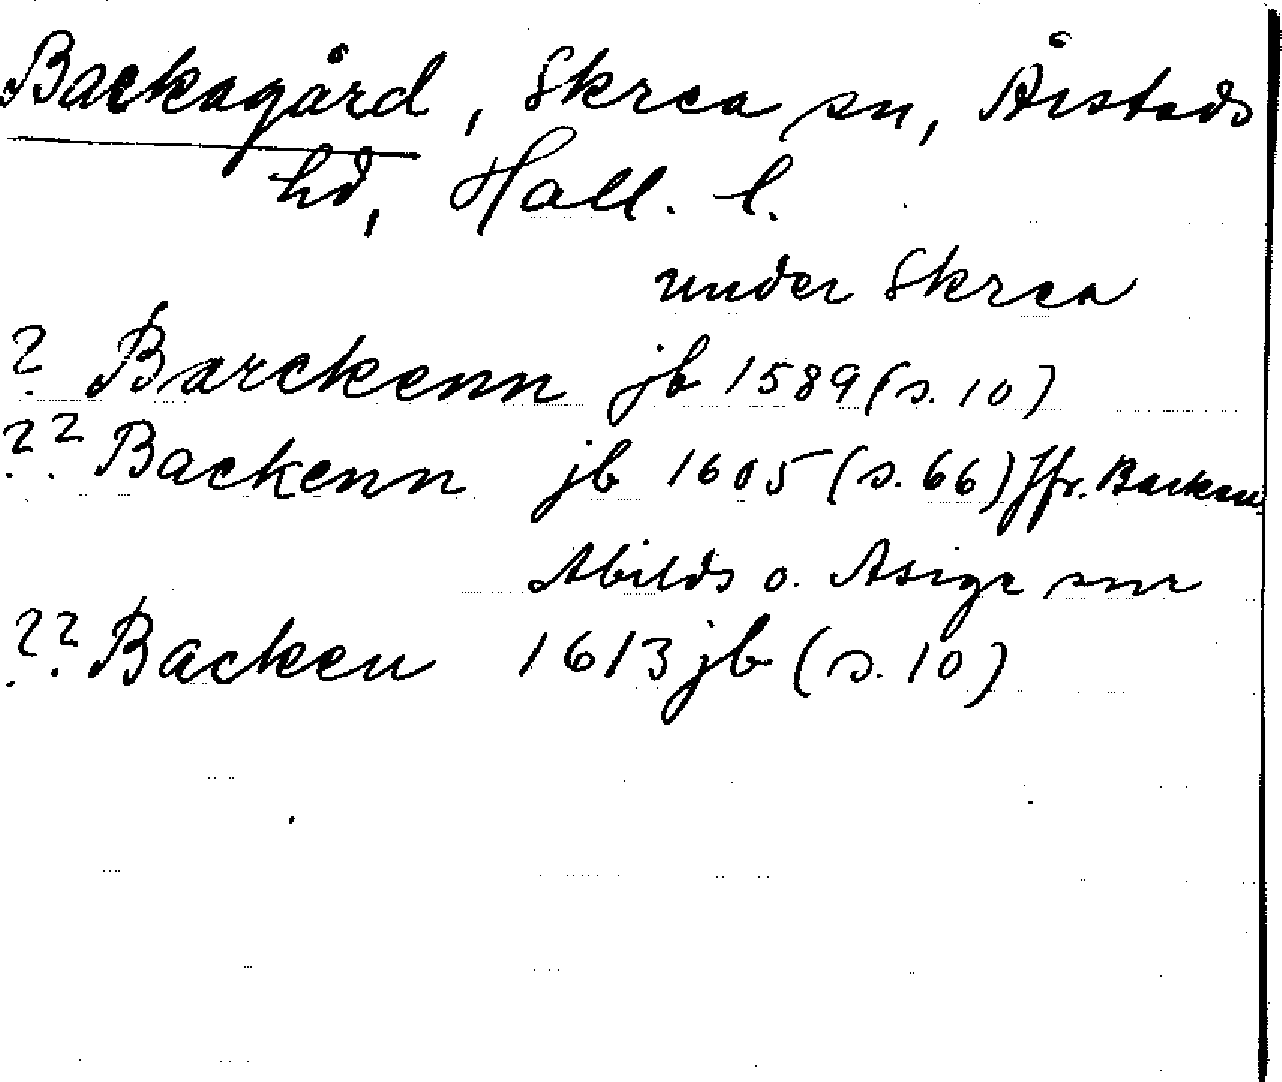 Backagård, Skrea sn, Årstads
hd, Hall. l.
under Skrea
? Barckenn jb 1589 (s. 10)
?? Backenn jb 1605 (s. 66) Jfr. Backen
Abilds o. Asige snr
?? Backen 1613 jb (s. 10)